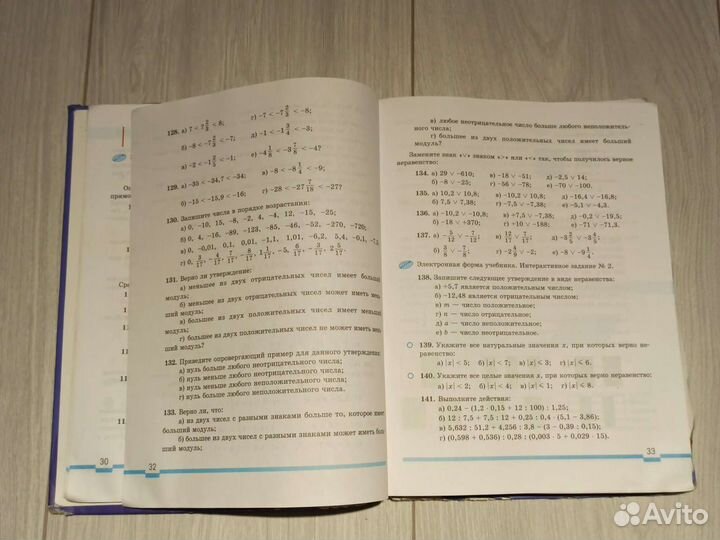 128. а) 7 < 7 2/3 < 8; г) -7 < -7 2/3 < -8;
б) -8 < -7 2/3 < -7; д) -1 < -1 3/4 < -3;
в) -2 < -1 2/5 < -1; е) -4 1/8 < -3 7/8 < -4;
129. а) -35 < -34,7 < -34; в) -8 < -8 1/4 < -9;
б) -15 < -15,9 < -16; г) -28 < -27 7/18 < -27?
130. Запишите числа в порядке возрастания:
а) 0, -10, 15, -8, -2, 4, -4, 12, -15, -25;
б) 0, 4, -16, -89, -123, -85, -46, -52, -270, -720;
в) 0, -0,01, 0,1, 0,01, -1,1, 1,01, -6,2, 5,4, -0,1,
131. Верно ли утверждение:
а) меньшее из двух отрицательных чисел имеет больший
модуль;
б) меньшее из двух отрицательных чисел может иметь мень-
ший модуль;
в) большее из двух положительных чисел имеет меньший
модуль;
г) большее из двух положительных чисел не может иметь мень-
ший модуль?
132. Приведите опровергающий пример для данного утверждения:
а) нуль больше любого неотрицательного числа;
б) нуль меньше любого неотрицательного числа;
в) нуль меньше любого неположительного числа;
г) нуль больше любого неположительного числа.
133. Верно ли, что:
а) из двух чисел с разными знаками больше то, которое имеет
больший модуль;
б) большее из двух чисел с разными знаками может иметь боль-
ший модуль;
30
32
в) любое неотрицательное число больше любого неположитель-
ного числа;
г) большее из двух положительных чисел имеет больший
модуль?
Замените знак «∨» знаком «>» или «<» так, чтобы получилось верное
неравенство:
134. а) 29 ∨ -610; в) -18 ∨ -51; д) -2,5 ∨ 14;
б) -8 ∨ -25; г) -56 ∨ -78; е) -70 ∨ -100.
135. а) 10,2 ∨ 10,8; в) -10,2 ∨ 10,8; д) -16,4 ∨ -16,8;
б) 7,5 ∨ 7,38; г) -7,5 ∨ -7,38; е) -5,1 ∨ -4,3.
136. а) -10,2 ∨ -10,8; в) +7,5 ∨ -7,38; д) -0,2 ∨ -19,5;
б) -18 ∨ +370; г) +10 ∨ -188; е) -71 ∨ -71,3.
137. а) -5/12 ∨ -7/12; в) 12/17 ∨ 7/17; д) -3 2/5 ∨ -3 4/5;
Электронная форма учебника. Интерактивное задание № 2.
138. Запишите следующее утверждение в виде неравенства:
а) +5,7 является положительным числом;
б) -12,48 является отрицательным числом;
в) m — число положительное;
г) n — число отрицательное;
д) a — число неположительное;
е) b — число неотрицательное.
139. Укажите все натуральные значения x, при которых верно не-
равенство:
а) |x| < 5; б) |x| < 7; в) |x| ⩽ 3; г) |x| ⩽ 6.
140. Укажите все целые значения x, при которых верно неравенство:
а) |x| < 2; б) |x| < 4; в) |x| ⩽ 1; г) |x| ⩽ 8.
141. Выполните действия:
а) 0,24 - (1,2 · 0,15 + 12 : 100) : 1,25;
б) 12 : 7,5 + 7,5 : 12 + 0,25 : 0,4 · (5,1 - 3,86);
в) 5,632 : 51,2 + 4,256 : 3,8 - (3 - 0,39 : 0,15);
г) (0,598 + 0,536) : 0,28 : (0,003 · 5 + 0,029 · 15).
33
Avito